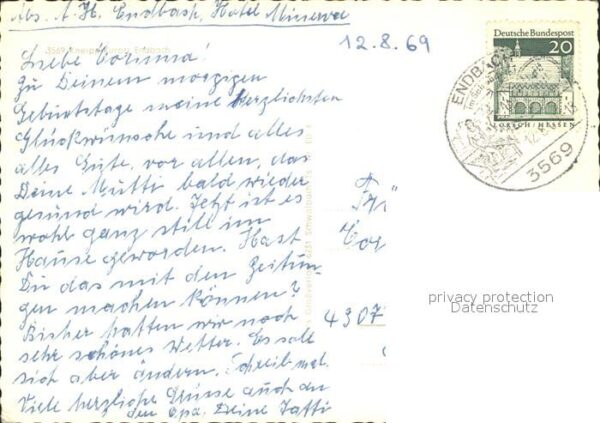 Abs. A. H. Endbach, Hotel Minerva
3569 Kneipp-Kurort Endbach
12.8.69
Liebe Corinna!
Zu Deinem morgigen
Geburtstage meine herzlichsten
Glückwünsche und alles
alles Gute, vor allen, das
Deine Mutti bald wieder
gesund wird. Jetzt ist es
wohl ganz still im
Hause geworden. Hast
Du das mit den Zeitun-
gen machen können?
Bisher hatten wir noch
sehr schönes Wetter. Es soll
sich aber ändern. Schreib mal.
Viele herzliche Grüsse auch an
den Opa. Deine
Deutsche Bundespost
20
LORSCH/HESSEN
ENDBACH
3569
Cor
4307
privacy protection
Datenschutz